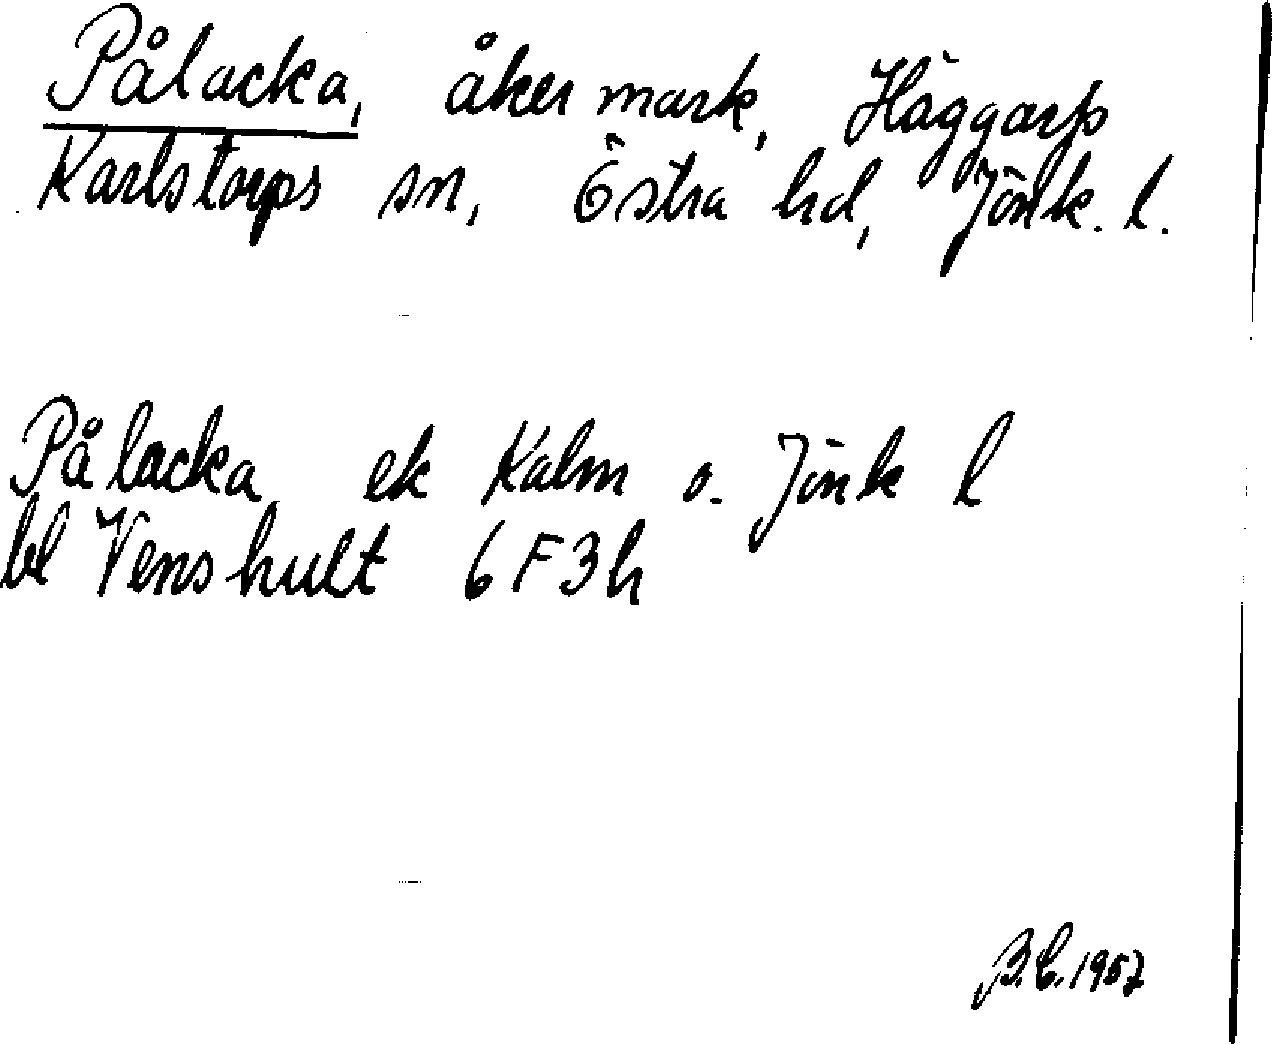 Pålacka, åkermark, Häggarp
Karlstorps sn, Östra hd, Jönk. l.
Pålacka ek Kalm o. Jönk l
bl Venshult 6F3h
B.C. 1957